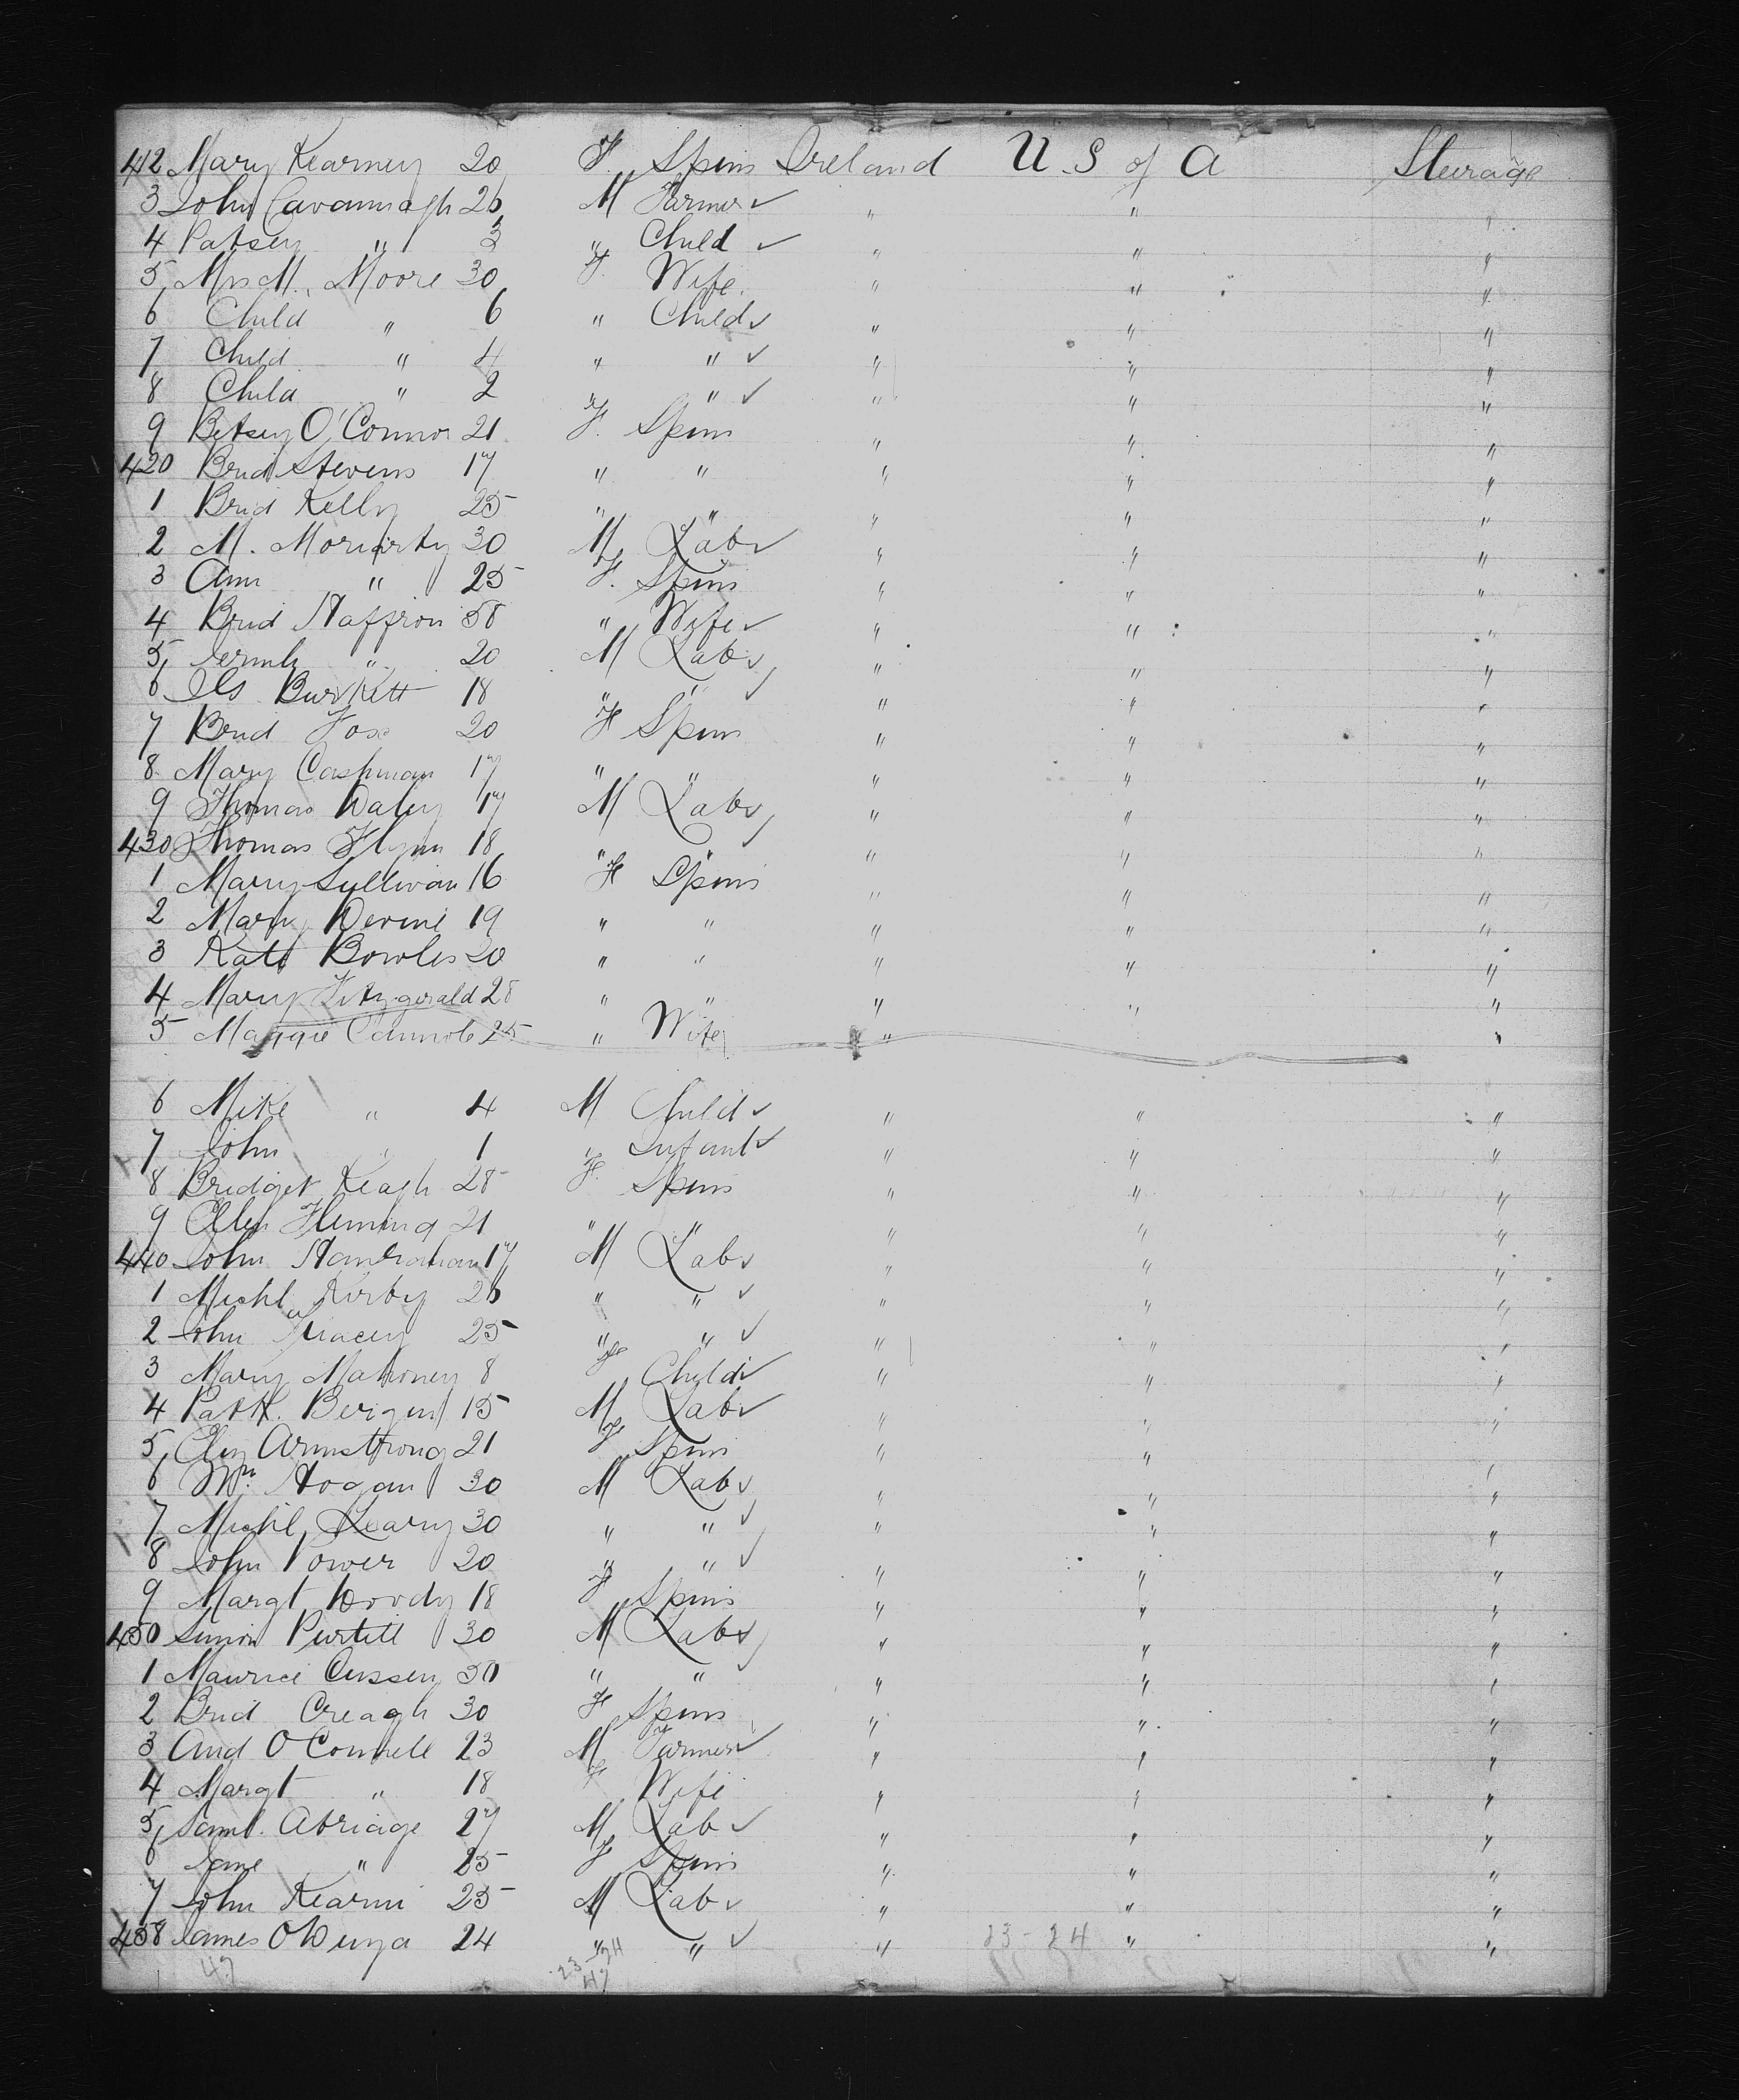 412 Mary Kearney 20 F. Spins Ireland U.S of A Steerage
3 John Cavannagh 26 M Farmer ✓ " " "
4 Patsey " 3 " Child ✓ " " "
5 Mrs M. Moore 30 F. Wife " " "
6 Child " 6 " Child ✓ " " "
7 Child " 4 " " ✓ " " "
8 Child " 2 " " ✓ " " "
9 Betsey O'Connor 21 F. Spins " " "
420 Brid Stevens 17 " " " " "
1 Brid Kelly 25 " " " " "
2 M. Moriarty 30 M Lab ✓ " " "
3 Ann " 25 F. Spins " " "
4 Brid Haffron 58 " Wife ✓ " " "
5 Jermh " 20 M Lab ✓ " " "
6 Burkett 18 " " ✓ " " "
7 Brid Fox 20 F Spins " " "
8 Mary Cashman 17 " " " " "
9 Thomas Daley 17 M Lab ✓ " " "
430 Thomas Flynn 18 " " ✓ " " "
1 Mary Sullivan 16 F Spins " " "
2 Mary Devine 19 " " " " "
3 Kate Bowles 20 " " " " "
4 Mary Fitzgerald 28 " " " " "
5 Maggie 25 " Wife " "
6 Mike " 4 M Child ✓ " " "
7 John " 1 " Infant ✓ " " "
8 Bridget Keagh 28 F. Spins " " "
9 Ellen Fleming 21 " " " " "
440 John Hanrahan 17 M Lab ✓ " " "
1 Michl Kirby 26 " " ✓ " " "
2 John Tracey 25 " " ✓ " " "
3 Mary Mahoney 8 F Child ✓ " " "
4 Patk. Bergin 15 M Lab ✓ " " "
5 Armstrong 21 F Spins " " "
6 Wm. Hogan 30 M Lab ✓ " " "
7 Michl Leary 30 " " ✓ " " "
8 John Power 20 " " ✓ " " "
9 Margt Doody 18 F Spins " " "
450 Simon Purtill 30 M Lab ✓ " " "
1 Maurice Cussen 30 " " ✓ " " "
2 Brid Creagh 30 F Spins " " "
3 And O'Connell 23 M Farmer ✓ " " "
4 Margt " 18 F Wife " " "
5 Saml. Abriage 27 M Lab ✓ " " "
6 Jane " 25 F Spins " " "
7 John Kearin 25 M Lab ✓ " " "
458 James 24 " " ✓ " 23-24 " "
47 23-24
47